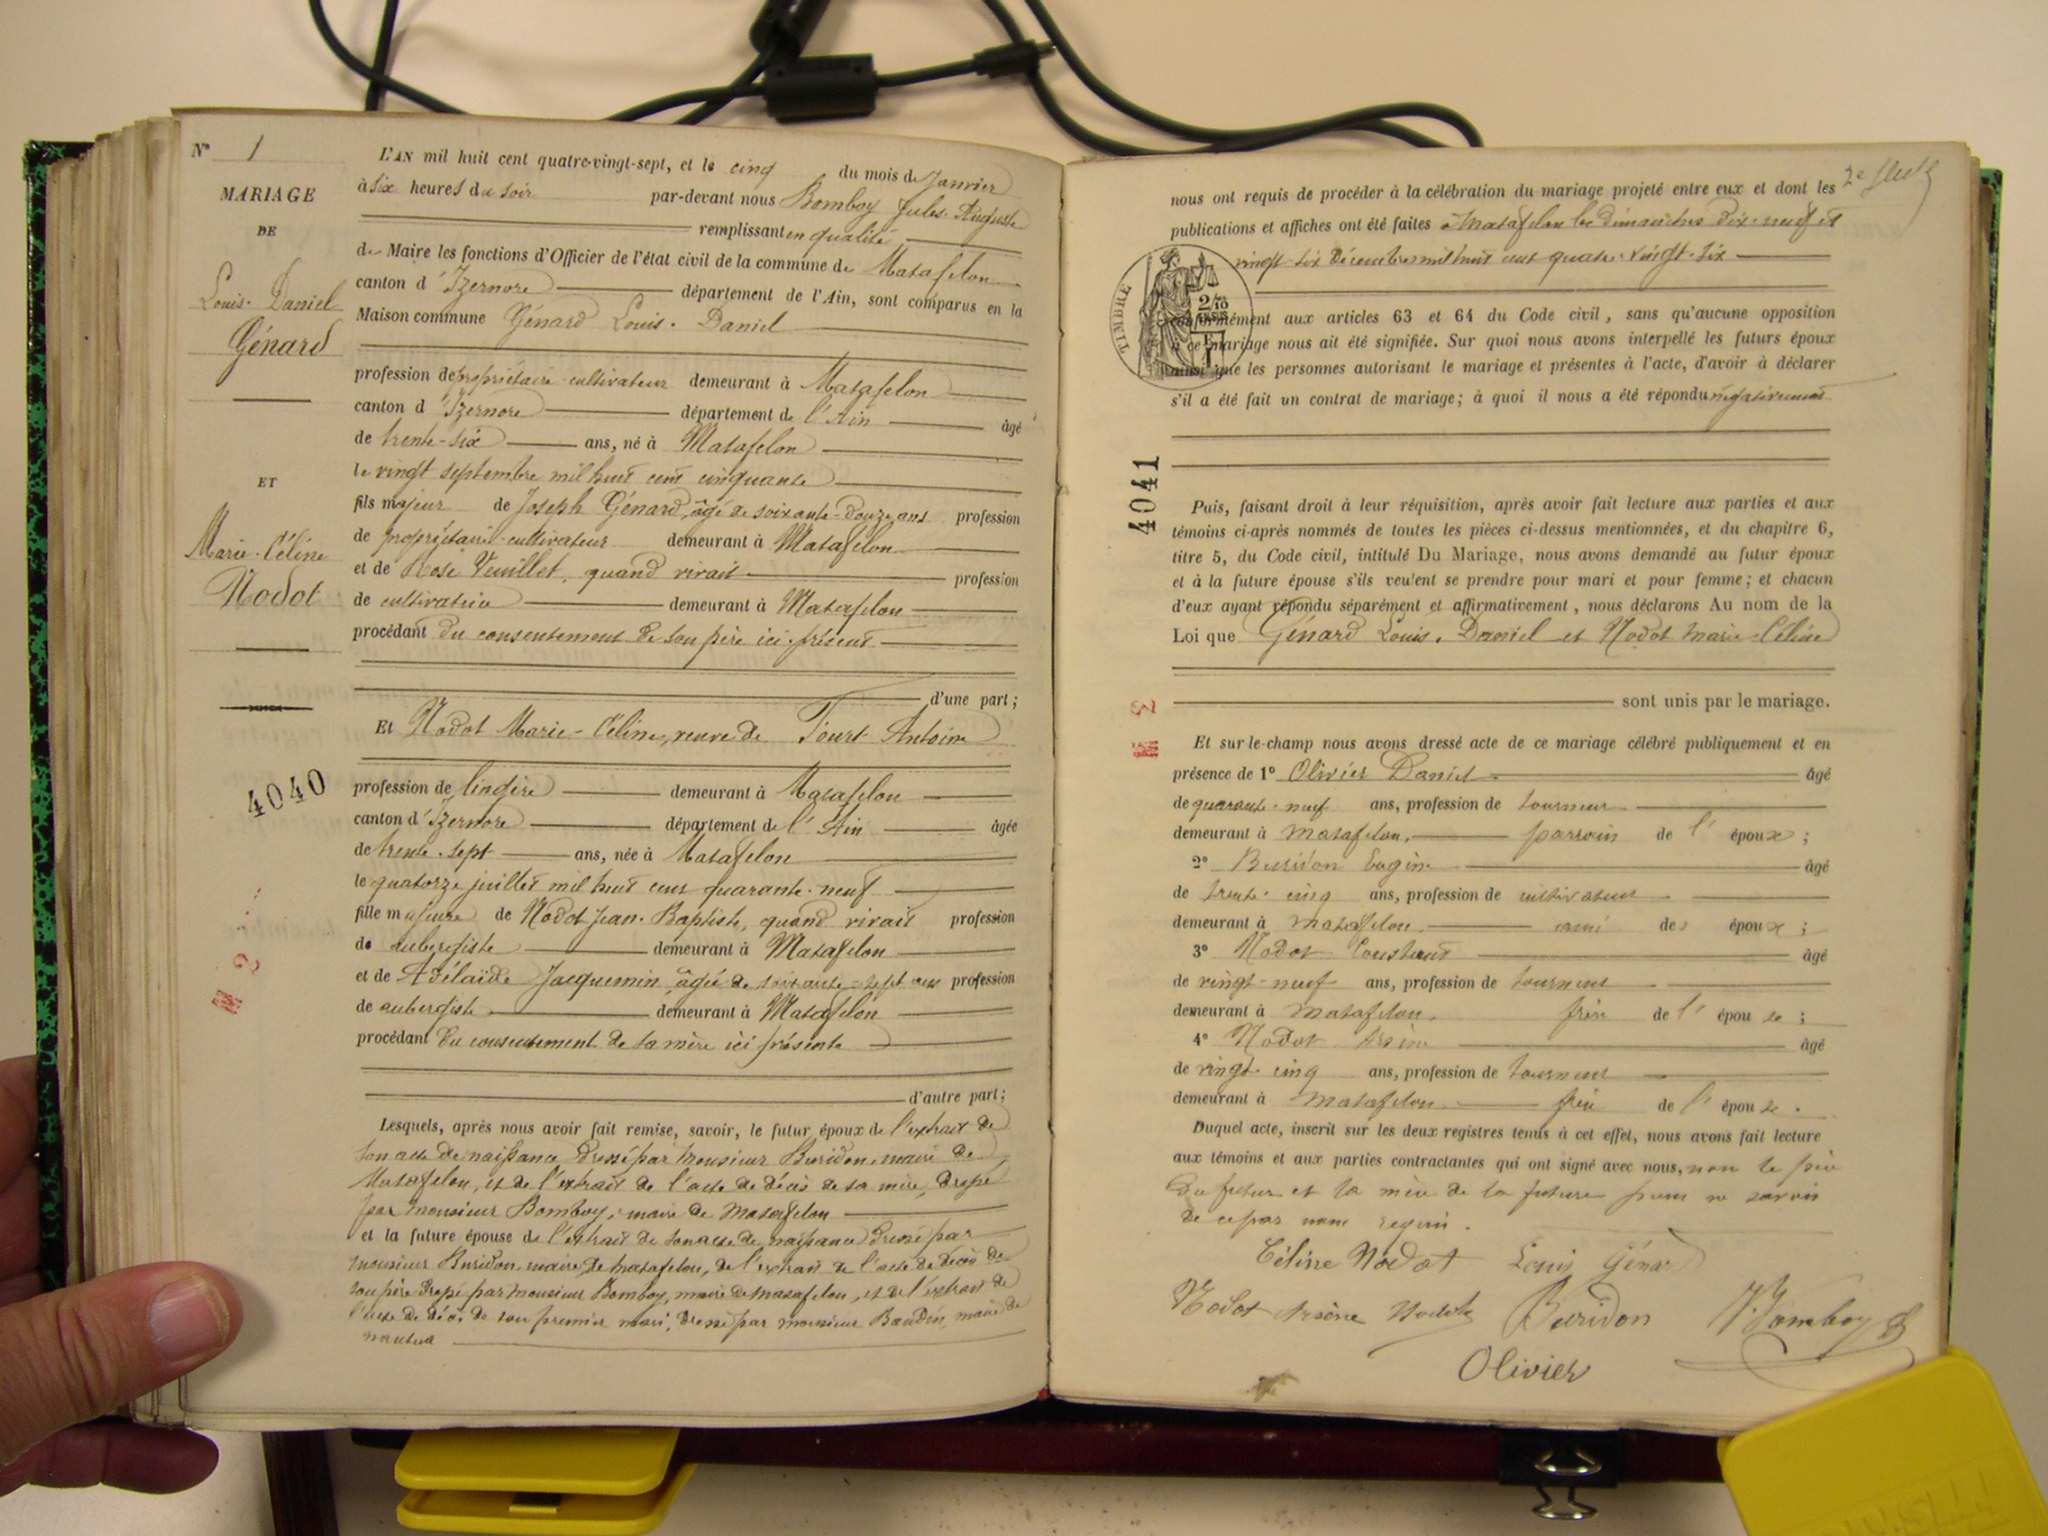 N° 1
MARIAGE
DE
Louis-Daniel
Génard
ET
Marie-Céline
Nodot
4040
L'AN mil huit cent quatre-vingt-sept, et le cinq du mois de Janvier
à six heures du soir par-devant nous Bomboy Jules-Auguste
remplissant en qualité
de Maire les fonctions d'Officier de l'état civil de la commune de Matafelon
canton d'Izernore département de l'Ain, sont comparus en la
Maison commune Génard Louis-Daniel
profession de propriétaire-cultivateur demeurant à Matafelon
canton d'Izernore département de l'Ain âgé
de trente-six ans, né à Matafelon
le vingt septembre mil huit cent cinquante
fils majeur de Joseph Génard, âgé de soixante-douze ans profession
de propriétaire-cultivateur demeurant à Matafelon
et de Rose Vuillet, quand vivait profession
de cultivatrice demeurant à Matafelon
procédant du consentement de son père ici présent
d'une part;
Et Nodot Marie-Céline, veuve de Antoine
profession de lingère demeurant à Matafelon
canton d'Izernore département de l'Ain âgée
de trente-sept ans, née à Matafelon
le quatorze juillet mil huit cent quarante-neuf
fille majeure de Nodot Jean-Baptiste, quand vivait profession
de aubergiste demeurant à Matafelon
et de Adélaïde Jacquemin, âgée de soixante-sept ans profession
de aubergiste demeurant à Matafelon
procédant du consentement de sa mère ici présente
d'autre part;
Lesquels, après nous avoir fait remise, savoir, le futur époux de l'extrait de
son acte de naissance dressé par Monsieur Buridon, maire de
Matafelon, et de l'extrait de l'acte de décès de sa mère, dressé
par Monsieur Bomboy, maire de Matafelon
et la future épouse de l'extrait de son acte de naissance dressé par
Monsieur Buridon, maire de Matafelon, de l'extrait de l'acte de décès de
son père dressé par Monsieur Bomboy, maire de Matafelon, et de l'extrait de
l'acte de décès de son premier mari, dressé par Monsieur Baudin, maire de
nous ont requis de procéder à la célébration du mariage projeté entre eux et dont les
publications et affiches ont été faites à Matafelon les dimanches dix-neuf et
vingt-six Décembre mil huit cent quatre-vingt-six
TIMBRE
conformément aux articles 63 et 64 du Code civil, sans qu'aucune opposition
à ce mariage nous ait été signifiée. Sur quoi nous avons interpellé les futurs époux
ainsi que les personnes autorisant le mariage et présentes à l'acte, d'avoir à déclarer
s'il a été fait un contrat de mariage; à quoi il nous a été répondu négativement
4041
Puis, faisant droit à leur réquisition, après avoir fait lecture aux parties et aux
témoins ci-après nommés de toutes les pièces ci-dessus mentionnées, et du chapitre 6,
titre 5, du Code civil, intitulé Du Mariage, nous avons demandé au futur époux
et à la future épouse s'ils veulent se prendre pour mari et pour femme; et chacun
d'eux ayant répondu séparément et affirmativement, nous déclarons Au nom de la
Loi que Génard Louis-Daniel et Nodot Marie-Céline
sont unis par le mariage.
Et sur-le-champ nous avons dressé acte de ce mariage célébré publiquement et en
présence de 1° Olivier Daniel âgé
de quarante-neuf ans, profession de tourneur
demeurant à Matafelon, parrain de l'époux;
2° Buridon Eugène âgé
de trente-cinq ans, profession de cultivateur
demeurant à Matafelon. ami des époux;
3° Nodot Constant âgé
de vingt-neuf ans, profession de tourneur
demeurant à Matafelon. frère de l'épouse;
4° Nodot Arsène âgé
de vingt-cinq ans, profession de tourneur
demeurant à Matafelon frère de l'épouse.
Duquel acte, inscrit sur les deux registres tenus à cet effet, nous avons fait lecture
aux témoins et aux parties contractantes qui ont signé avec nous, non le père
du futur et la mère de la future pour ne savoir
de ce par nous requis.
Céline Nodot Louis Génard
Nodot Arsène Nodot Buridon J. Bomboy
Olivier